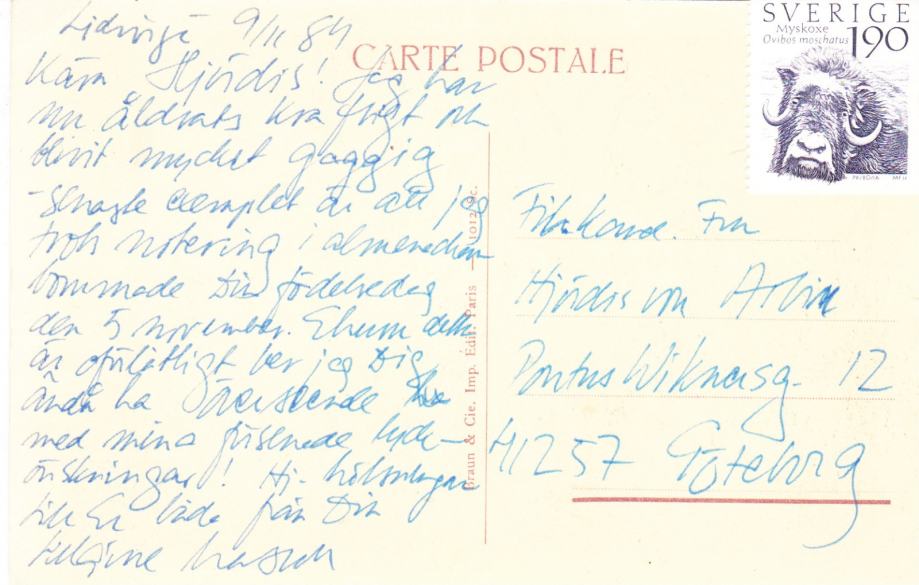 Lidingö 9/11 84
Kära Hjördis! Jag har
nu åldrats kraftigt och
blivit mycket gaggig
- senaste exemplet är att jag
trots notering i almanackan
bommade Din födelsedag
den 5 november. Ehuru detta
är oförlåtligt ber jag Dig
ändå ha överseende
med mina försenade lyck-
önskningar! Hj. hälsningar
till Er båda från Din
CARTE POSTALE
Braun & Cie. Imp. Edit. Paris — 1012 9c.
SVERIGE
Myskoxe
Ovibos moschatus
190
Fil. kand. Fru
Hjördis von Arbin
Pontus Wiknersg. 12
41257 Göteborg